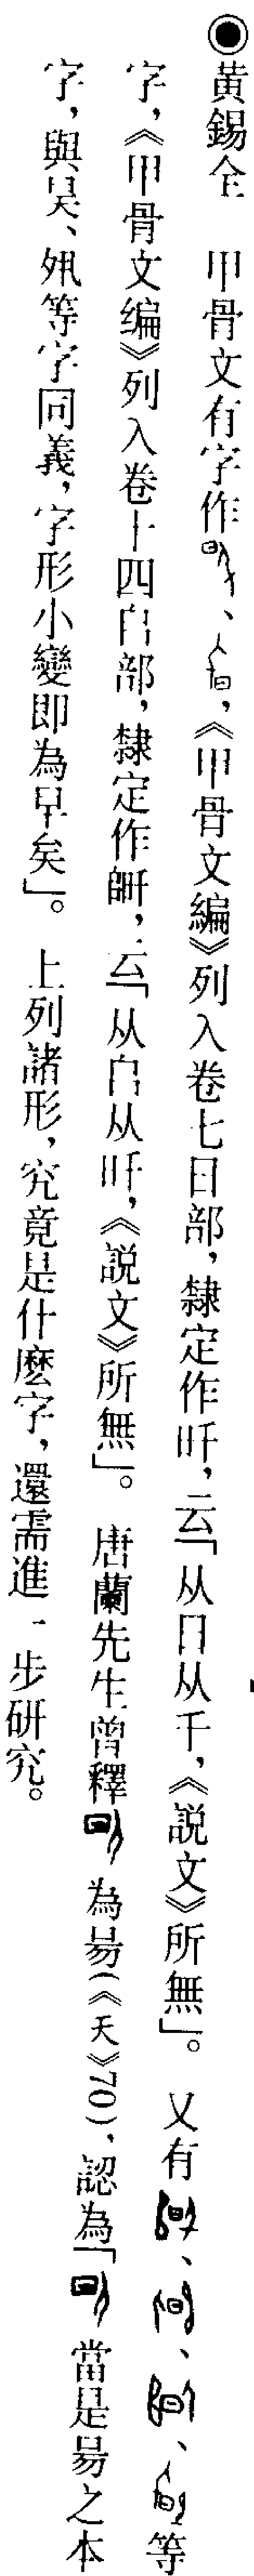 ◉黃錫全　甲骨文有字作、，《甲骨文編》列入卷七日部，隸定作旴，云「从日从千，《説文》所無」。又有、、、等
字，《甲骨文编》列入卷十四𠂤部，隸定作，云「从𠂤从旴，《説文》所無」。唐蘭先生曾釋為昜（《天》70），認為「當是昜之本
字，與昊、𡖊等字同義，字形小變即為早矣」。上列諸形，究竟是什麼字，還需進一步研究。